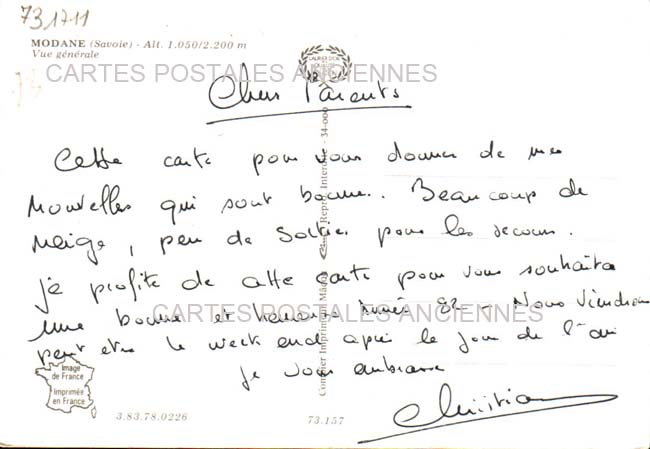 73 1711
MODANE (Savoie) - Alt. 1.050/2.200 m
Vue générale
CARTES POSTALES ANCIENNES
Chers Parents
Cette carte pour vous donner de mes
Nouvelles qui sont bonnes. Beaucoup de
Neige, peu de Sorties pour les secours.
je profite de cette carte pour vous souhaiter
une bonne et heureuse Année 82 - Nous viendrons
CARTES POSTALES ANCIENNES
peut etre le week end après le jour de l'an
je vous embrasse
Christian
Image
de France
Imprimée
en France
3.83.78.0226
73.157
Combier Imprimeur Mâcon
Repro. Interdite - 34-000